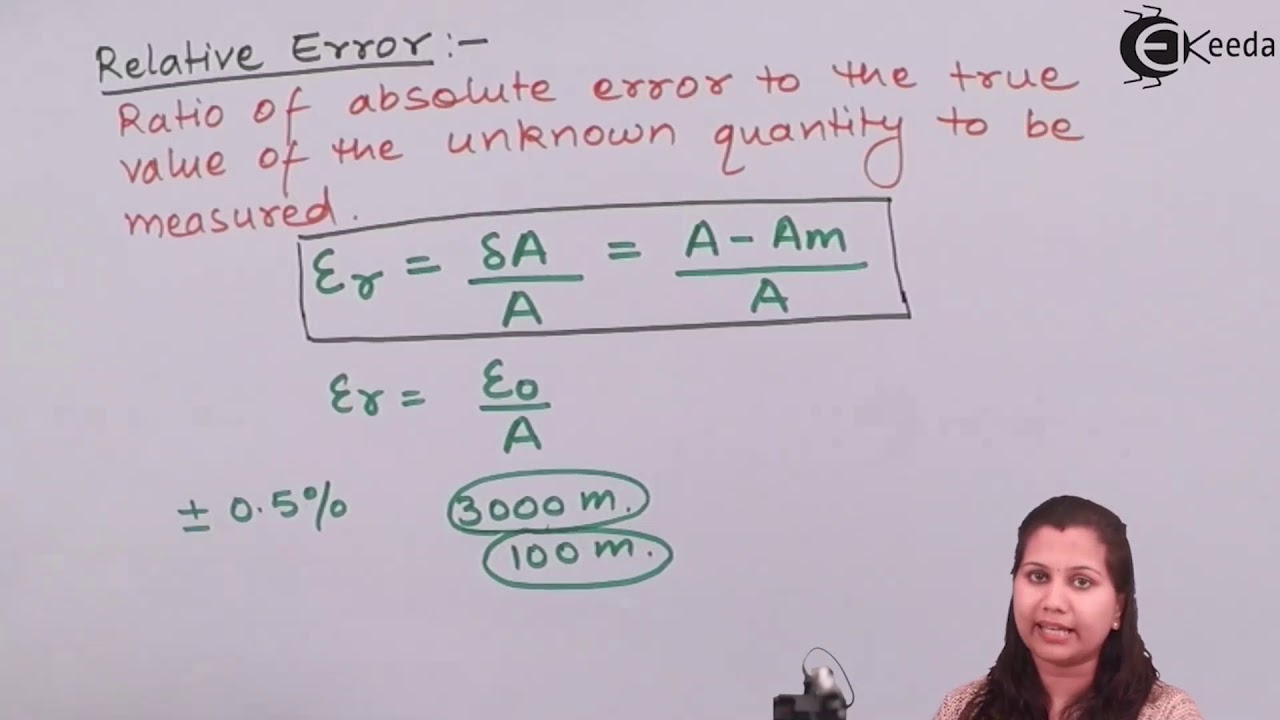 Relative Error:-
Ratio of absolute error to the true
value of the unknown quantity to be
measured.
Ɛr = δA/A = A - Am/A
Ɛr = Ɛo/A
± 0.5% 3000 m.
100 m.
Ekeeda